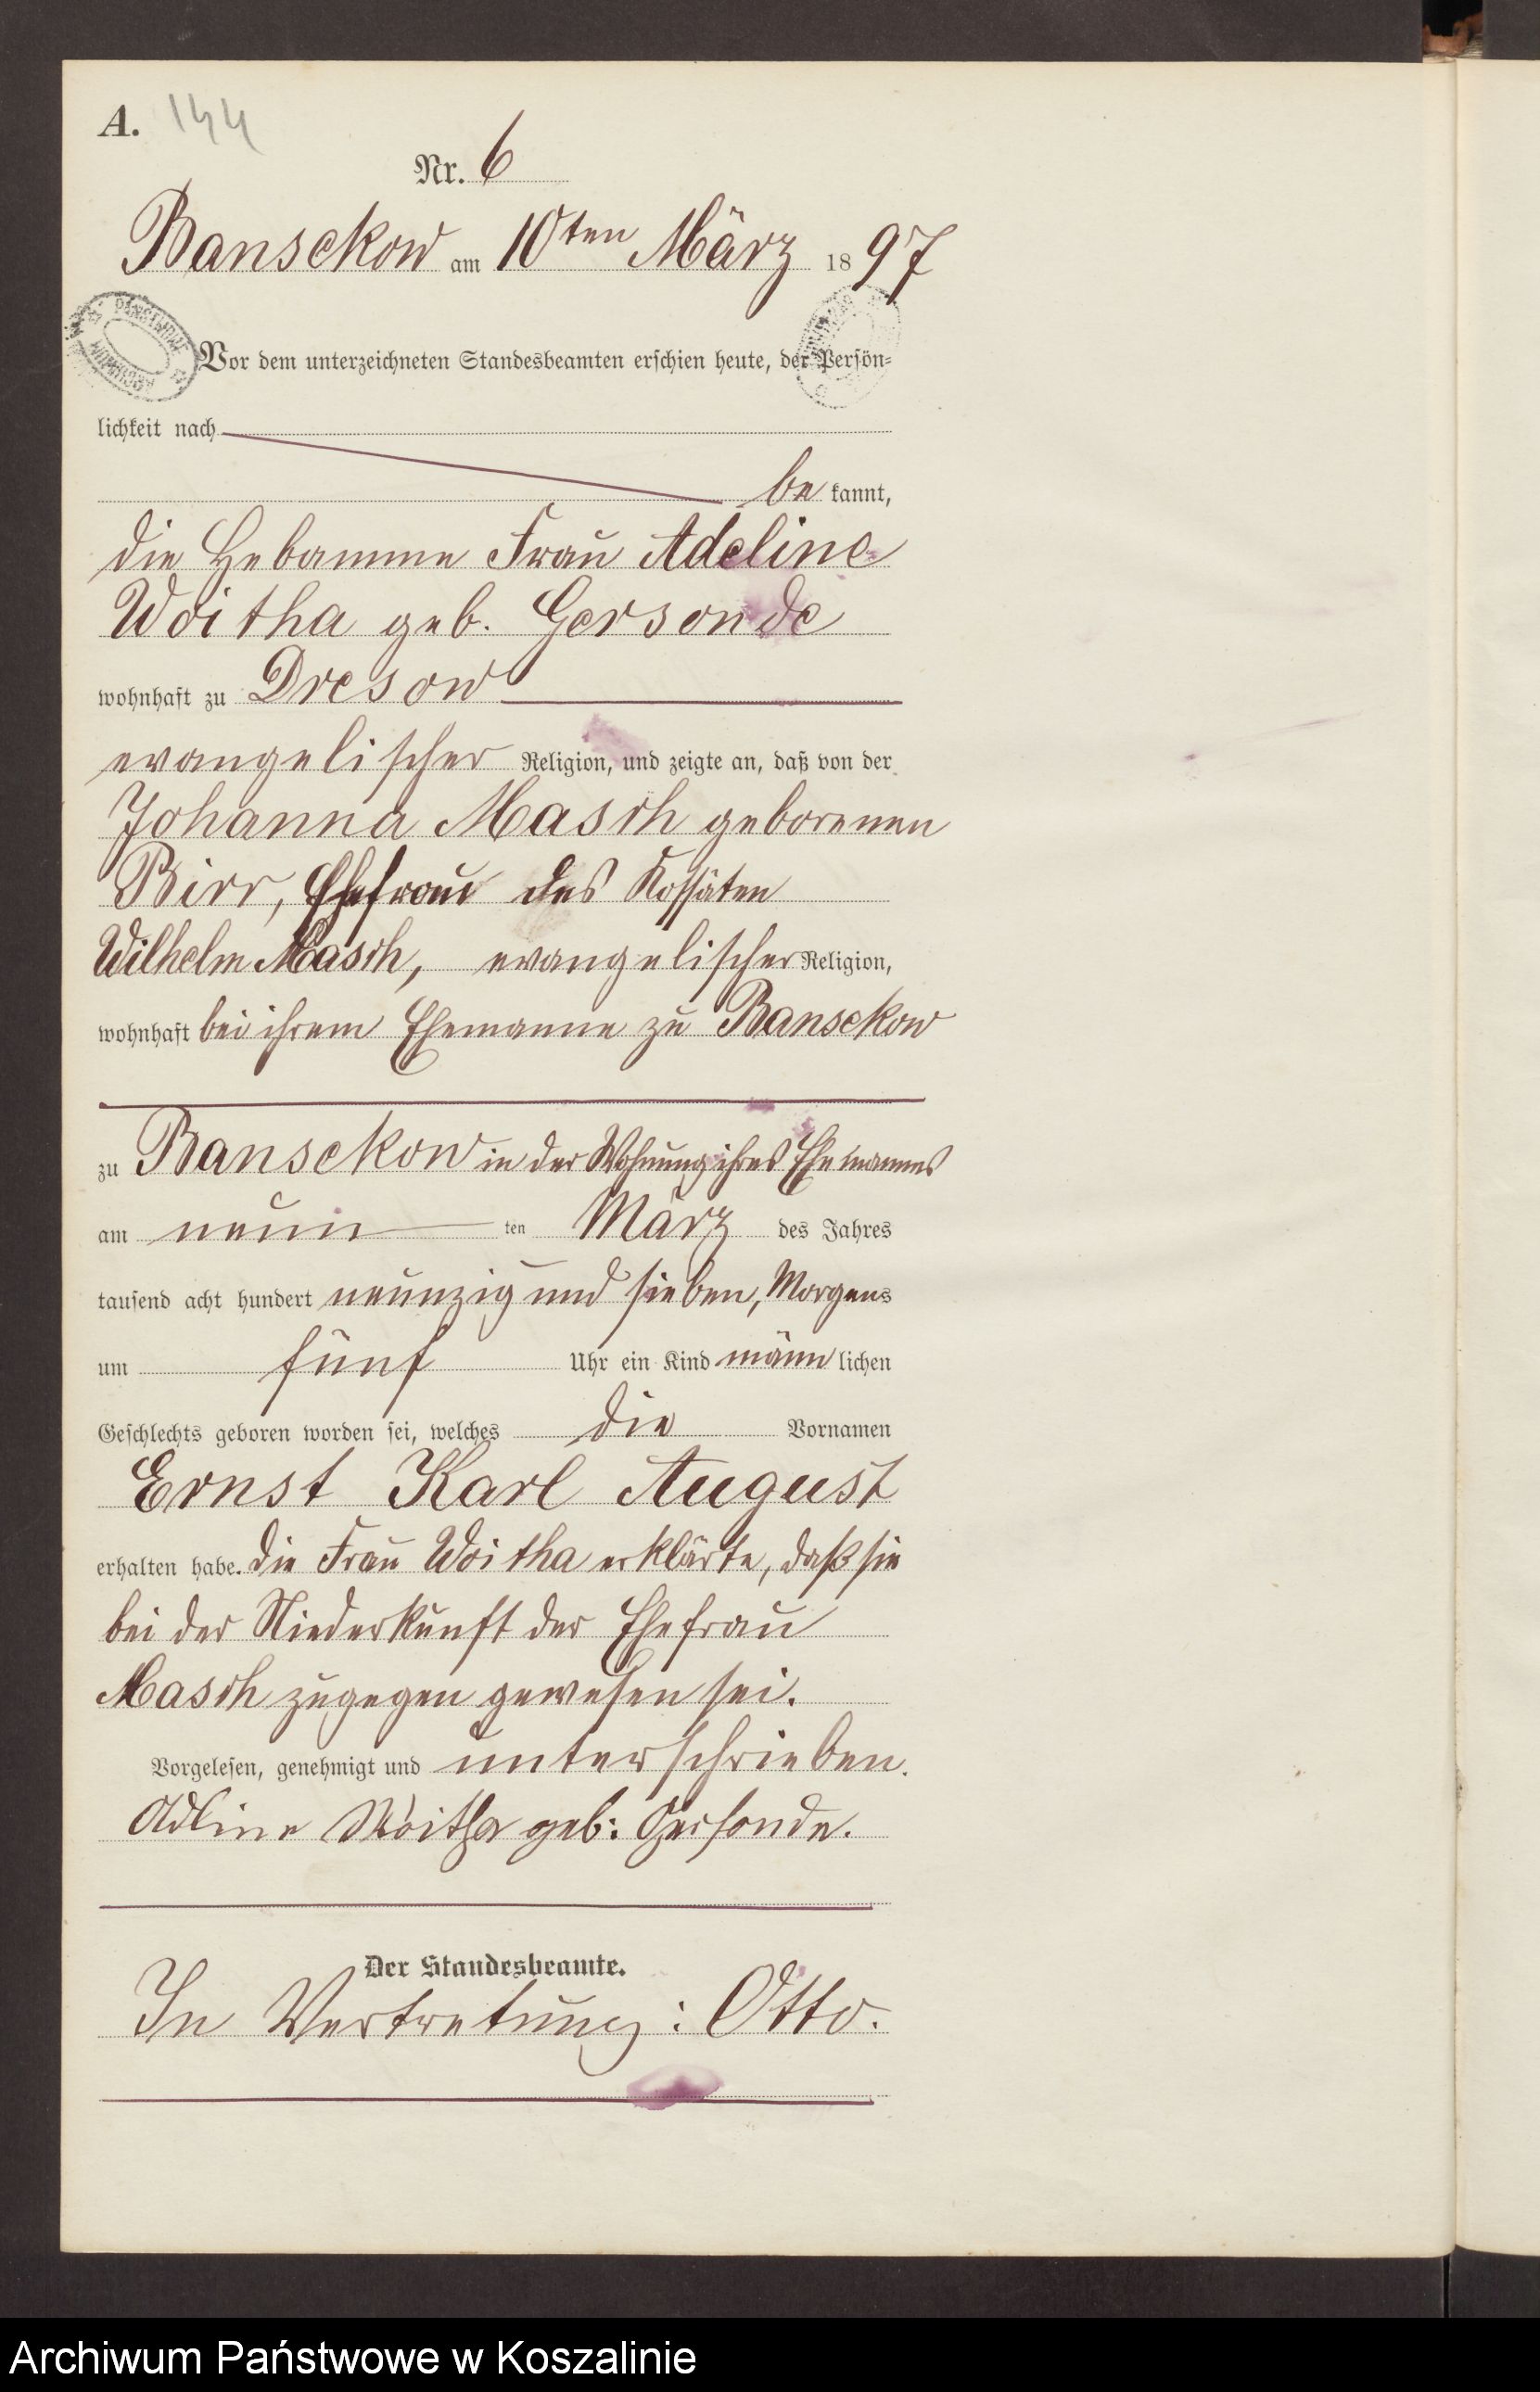 A. 144
Nr. 6
Bansekow am 10ten März 1897
Vor dem unterzeichneten Standesbeamten erschien heute, der Persön-
lichkeit nach
be kannt,
die Hebamme Frau Adeline
Woitha geb. Gersonde
wohnhaft zu Dresow
evangelischer Religion, und zeigte an, daß von der
Johanna Masch geborenen
Birr, Ehefrau des Kossäten
Wilhelm Masch, evangelischer Religion,
wohnhaft bei ihrem Ehemanne zu Bansekow
zu Bansekow in der Wohnung ihres Ehemannes
am neun ten März des Jahres
tausend acht hundert neunzig und sieben, Morgens
um fünf Uhr ein Kind männlichen
Geschlechts geboren worden sei, welches die Vornamen
Ernst Karl August
erhalten habe. Die Frau Woitha erklärte, daß sie
bei der Niederkunft der Ehefrau
Masch zugegen gewesen sei.
Vorgelesen, genehmigt und unterschrieben.
Adline Woitha geb: Gersonde.
Der Standesbeamte.
In Vertretung: Otto.
Archiwum Państwowe w Koszalinie